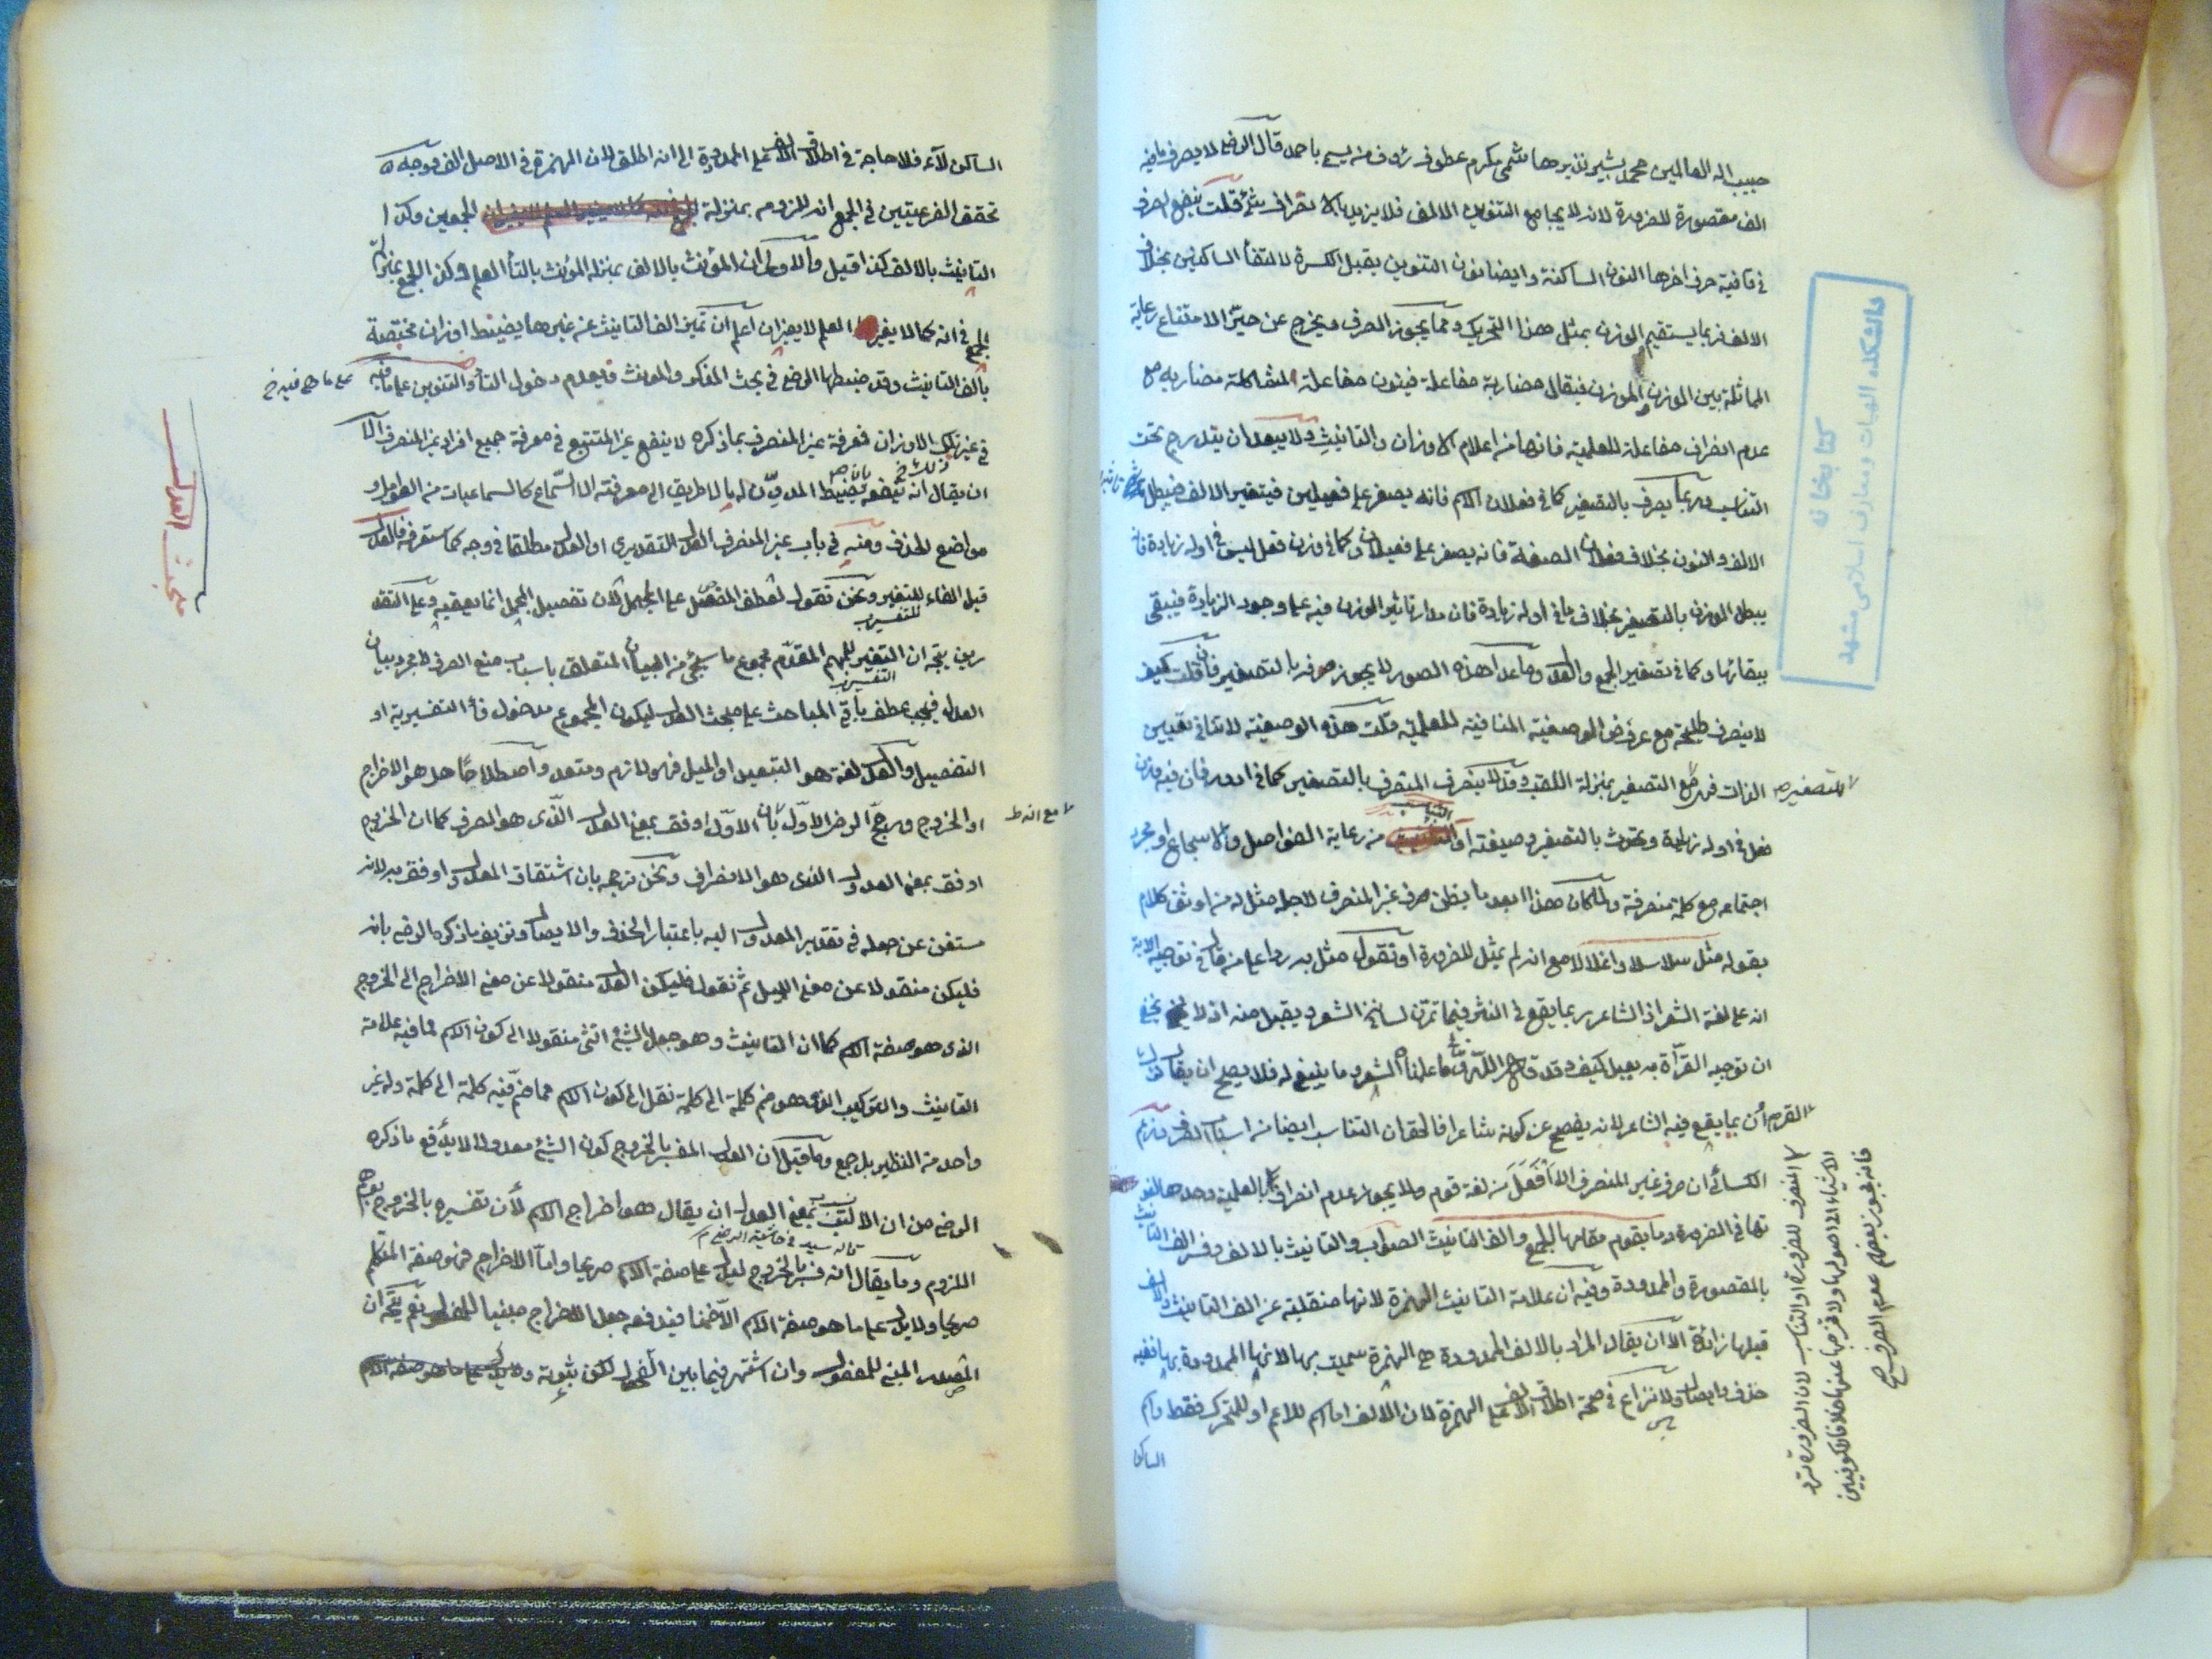 حبيب اله العالمين محمد بشير نذير هاشمي مكرم عطوف رؤف من يسمى باحمد قال الرضي لا يصرف ما فيه
الف مقصورة للضرورة لانه لا يجامع التنوين الالف فلا يزيد بالانصراف شئ قلت ينفع الصرف
في قافية حرف اخرها النون الساكنة وايضا نون التنوين يقبل الكسرة لالتقأ الساكنين بخلاف
الالف فربما يستقيم الوزن بمثل هذا التحريك ومما يجوز الصرف ويخرج عن حيّز الامتناع رعاية
المماثلة بين الموزون والموزن فيقال مضاربة مفاعلة فينون مفاعلة لمشاكلة مضاربة مع
عدم انصراف مفاعلة للعلمية فانها من اعلام الاوزان والتانيث ولا يبعد ان يندرج تحت
التناسب وربما يصرف بالتصغير كما في فعلان الاسم فانه يصغر على فعيلين فيتغير الالف فيبطل
الالف والنون بخلاف فعلان الصفة فانه يصغر على فعيلان وكما في وزن فعل ليس في اوله زيادة فانه
يبطل الوزن بالتصغير بخلاف ما في اوله زيادة فان مدار تاثير الوزن فيه على وجود الزيادة فيبقى
ببقائها وكما في تصغير الجمع والعدل وما عدا هذه الصور لا يجوز صرفه بالتصغير فان قلت كيف
لا ينصرف طليحة مع عروض الوصفية المنافية للعلمية قلت هذه الوصفية لا تنافي تعيين
الذات فهو مع التصغير بمنزلة اللقب وقد لا ينصرف المنصرف بالتصغير كما في ادور فان فيه وزن
للتصغير صح
فعل في اوله زيادة وتحدث بالتصغير صيغته او التناسب من رعاية الفواصل والاسجاع او مجرد
اجتماعه مع كلمة منصرفة ولما كان هذا ابعد ما يظن صرف غير المنصرف لاجله مثل له من اوثق كلام
بقوله مثل سلاسلا واغلالا مع انه لم يمثل للضرورة او نقول مثل به ردا على من قال في توجيه الاية
انه على لغة الشعر اذ الشاعر ربما يقع في النثر فيما تمرن لسانه في الشعر ويقبل منه اذ لا يخفى
ان توجيه القرآن به بعيد كيف وقد قال اللّه تعالى وما علمناه الشعر وما ينبغي له فلا يصح ان يقال في
القرآن بما يقع فيه الشاعر لانه يفصح عن كونه شاعرا فالحق ان التناسب ايضا من اسباب الصرف وزعم
الكسائي ان صرف غير المنصرف الا اَفْعَلَ مِن لغة قوم ولا يجوز عدم انصرافه بالعلمية وحدها لقو
تها في الضرورة وما يقوم مقامها الجمع والفا التانيث الصواب والتانيث بالالف وفسر الف التانيث
بالمقصورة والممدودة وفيه ان علامة التانيث الهمزة لانها منقلبة عن الف التانيث والالف
قبلها زائدة الا ان يقال المراد بالالف الممدودة هي الهمزة سميت بها لانها الممدودة بها ففيه
حذف وايصال ولا نزاع في صحة اطلاق الالف على الهمزة لان الالف اما اسم للاعم او للمتحرك فقط واسم
الساكن
المنصرف للضرورة او التناسب لان الضرورة ترد
الاشياء الى اصولها ولا تخرجها عنها خلافا للكوفيين
فانه يجوز بعضهم عدم الصرف صح
كتابخانه
دانشكده الهيات ومعارف اسلامى مشهد
الساكن لا آء فلا حاجة في اطلاق الالف على الممدودة الى انه اطلق لان الهمزة في الاصل الف ووجه
تحقق الفرعيتين في الجمع انه للزومه بمنزلة الجمعين وكذا
التانيث بالالف كذا قيل والاولى ان المؤنث بالالف بمنزلة المؤنث بالتأ العلم وكذا الجمع بمنزلة
الجمع في انه كما لا يغير العلم لا يغيران اعلم ان تميز الف التانيث عن غيرها يضبط اوزان مختصة
بالف التانيث وقد ضبطها الرضي في بحث المذكر والمونث وبعدم دخول التأ والتنوين على ما فيه
على ما هي فيه خ
في غير تلك الاوزان فمعرفة غير المنصرف بما ذكره لا ينفع غير المتتبع في معرفة جميع افراد غير المنصرف الا
ان يقال انه ينفعه بضبط المدوّن له ما لا طريق الى معرفته الا السّماع كالسماعيات من العوامل و
مواضع الحذف ومنه في باب غير المنصرف العدل التقديري او العدل مطلقا في وجه كما ستعرفه فالعدل
مبحث العدل
قيل الفاء للتفسير ونحن نقول لعطف المفصل على المجمل لان تفصيل المجمل انما يعقبه وعلى التقد
يرين يتجه ان التفسير للمهم المقدّم مجموع ما سيجئ من البيان المتعلق باسباب منع الصرف لا مجرد بيان
العدل فيجب عطف باقي المباحث على مبحث العدل ليكون المجموع مدخول فأ التفسيرية او
التفصيل والعدل لغة هو التبعيد او الميل فهو لازم ومتعد واصطلاحًا هل هو الاخراج
او الخروج ورجّح الرضي الاوّل بان الاوّل اوفق بمعنى العدل الّذي هو الصرف كما ان الخروج
مع انه ط
اوفق بمعنى العدول الذي هو الانصراف ونحن نرجحه بان اشتقاق المعدول اوفق به لانه
مستغن عن جعله في تقدير المعدول اليه باعتبار الحذف والايصال وتزييف ما ذكره الرضي بانه
فليكن منقولا عن معنى الميل ثم نقول فليكن العدل منقولا عن معنى الاخراج الى الخروج
الذي هو صفة الاسم كما ان التانيث وهو جعل الشئ انثى منقول الى كون الاسم مما فيه علامة
التانيث والتركيب الذي هو ضم كلمة الى كلمة نقل الى كون الاسم مما ضمّ فيه كلمة الى كلمة وله غير
واحد من النظير بل جمع وما قيل ان العدل المفسر بالخروج كون الشئ معدولا لا يدفع ما ذكره
الرضي من ان الاليق بمعنى العدل ان يقال هو اخراج الاسم لأن تفسيره بالخروج يوهم
قاله سيد في حاشية الرضي
اللزوم وما يقال انه فسر بالخروج ليدل على صفة الاسم صريحا وامّا الاخراج فهو صفة المتكلم
صريحا ولا يدل على ما هو صفة الاسم الّا ضمنا فيدفعه جعل الاخراج مبنيا للمفعول نعم يتّجه ان
المصدر المبني للمفعول وان اشتهر فيما بين الفحول لكن ثبوته